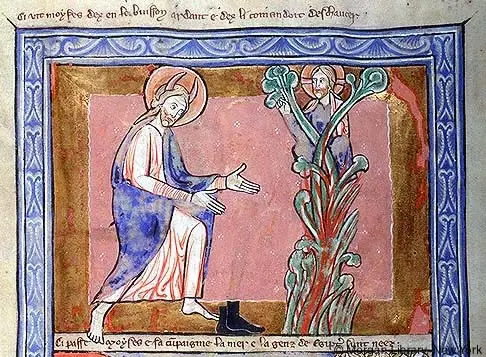 Ci uit moyses dex en le buisson ardant e dex li comendoit deshaucer
Ci passe moyses e sa cumpaignie la mer e la genz de egipte sunt neez
York